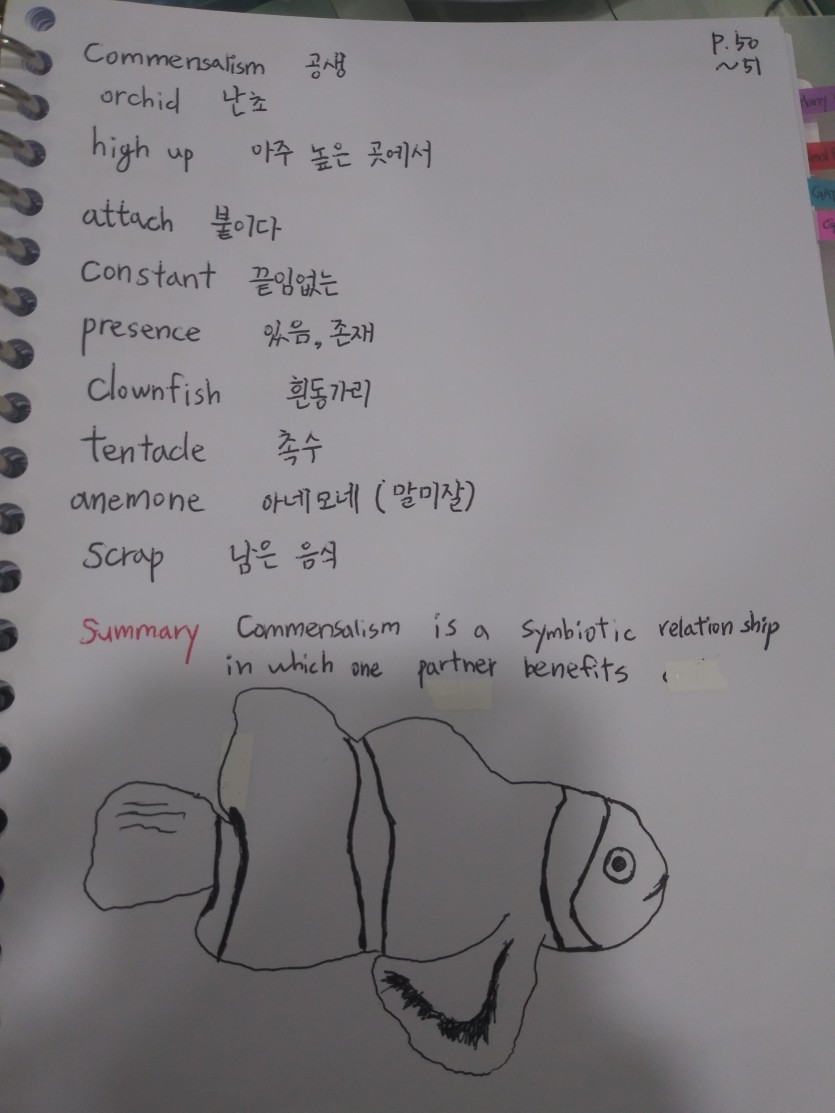 P.50
~51
Commensalism 공생
orchid 난초
high up 아주 높은 곳에서
attach 붙이다
Constant 끝임없는
presence 있음, 존재
Clownfish 흰동가리
tentacle 촉수
anemone 아네모네 (말미잘)
Scrap 남은 음식
Summary Commensalism is a symbiotic relationship
in which one partner benefits.